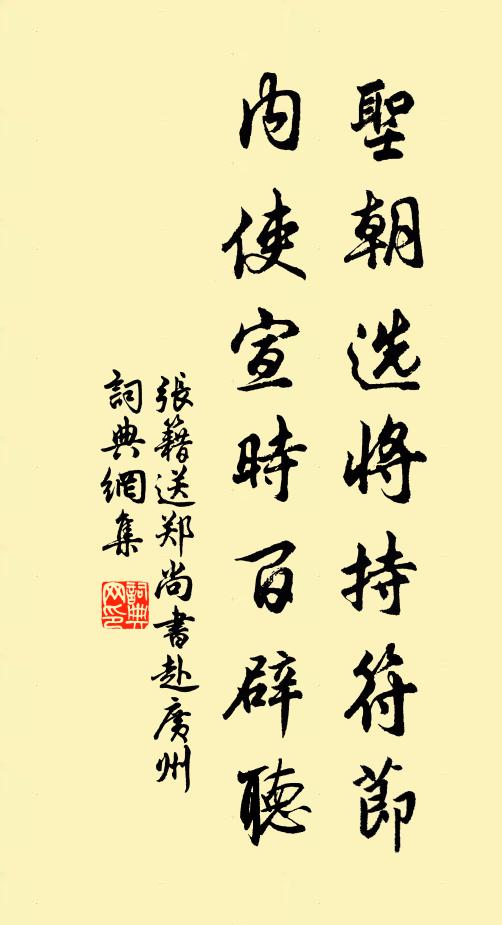 聖朝选将持符節
内使宣時百辟聽
張籍送郑尚書赴廣州
詞典網集
詞典网印